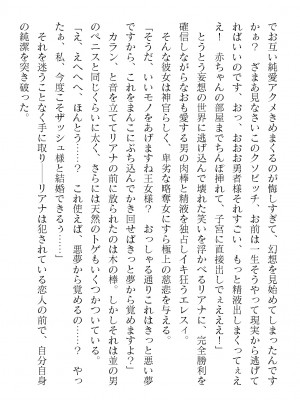 でお互い純愛アクメきめまくるのが悔しすぎて、幻想を見始めてしまったんです
かぁ？　ざまあ見なさいこのクソビッチ、お前は一生そうやって現実から逃げて
ればいいのです、おっ、おおお勇者様それすごい、もっと精液出しまくってぇえ
え！　赤ちゃんの部屋までちんぽ挿れて、子宮に直出してぇええぇ！」
　とうとう妄想の世界に逃げ込んで壊れた笑いを浮かべるリアナに、完全勝利を
確信しながらなおも愛する男の肉棒と精液を独占しイキ狂うエレスィ。
　そんな彼女は神官らしく、卑劣な略奪女にすら極上の慈悲を与える。
「そうだ、いいモノをあげますね王女様？　おっしゃる通りこれはきっと悪い夢
ですから、これをまんこにぶち込んでかき回せばきっと夢から覚めますよ？」
　カラン、と音を立ててリアナの前に放られたのは木の棒。しかしそれは並の男
のペニスと同じくらいに太く、さらには天然のトゲもいくつかついている。
「え、えへへ、ほんとう……？　これ使えば、悪夢から覚めるの……？　やっ
た、私、今度こそザッシュ様と結婚できるぅ……」
　それを迷うことなく手に取り――リアナは犯されている恋人の前で、自分自身
の純潔を突き破った。